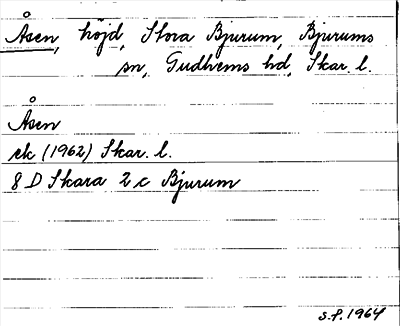 Åsen, höjd, Stora Bjurum, Bjurums
sn, Gudhems hd, Skar. l.
Åsen
ek (1962) Skar. l.
8 D Skara 2 c Bjurum
S.F. 1964